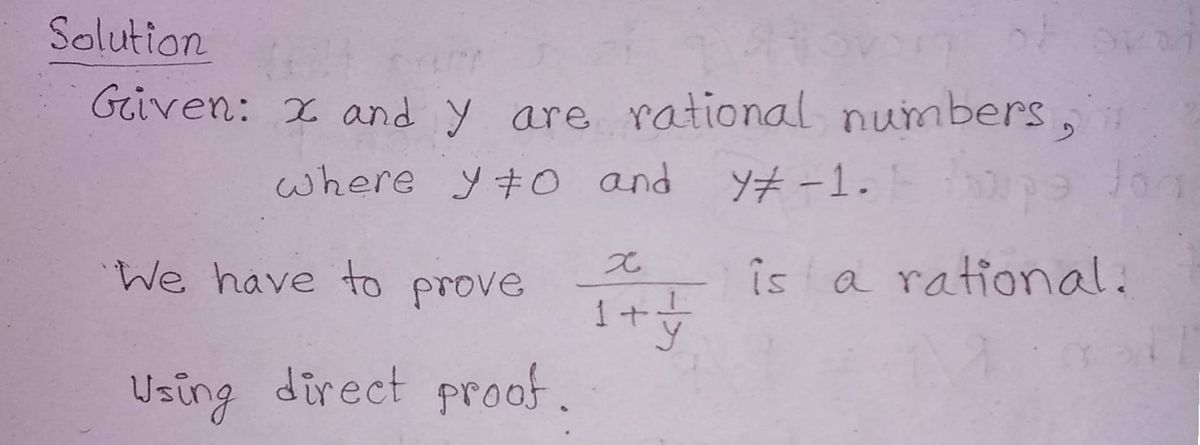 Solution
Given: x and y are rational numbers,
where y ≠ 0 and y ≠ -1.
We have to prove x / (1 + 1/y) is a rational.
Using direct proof.